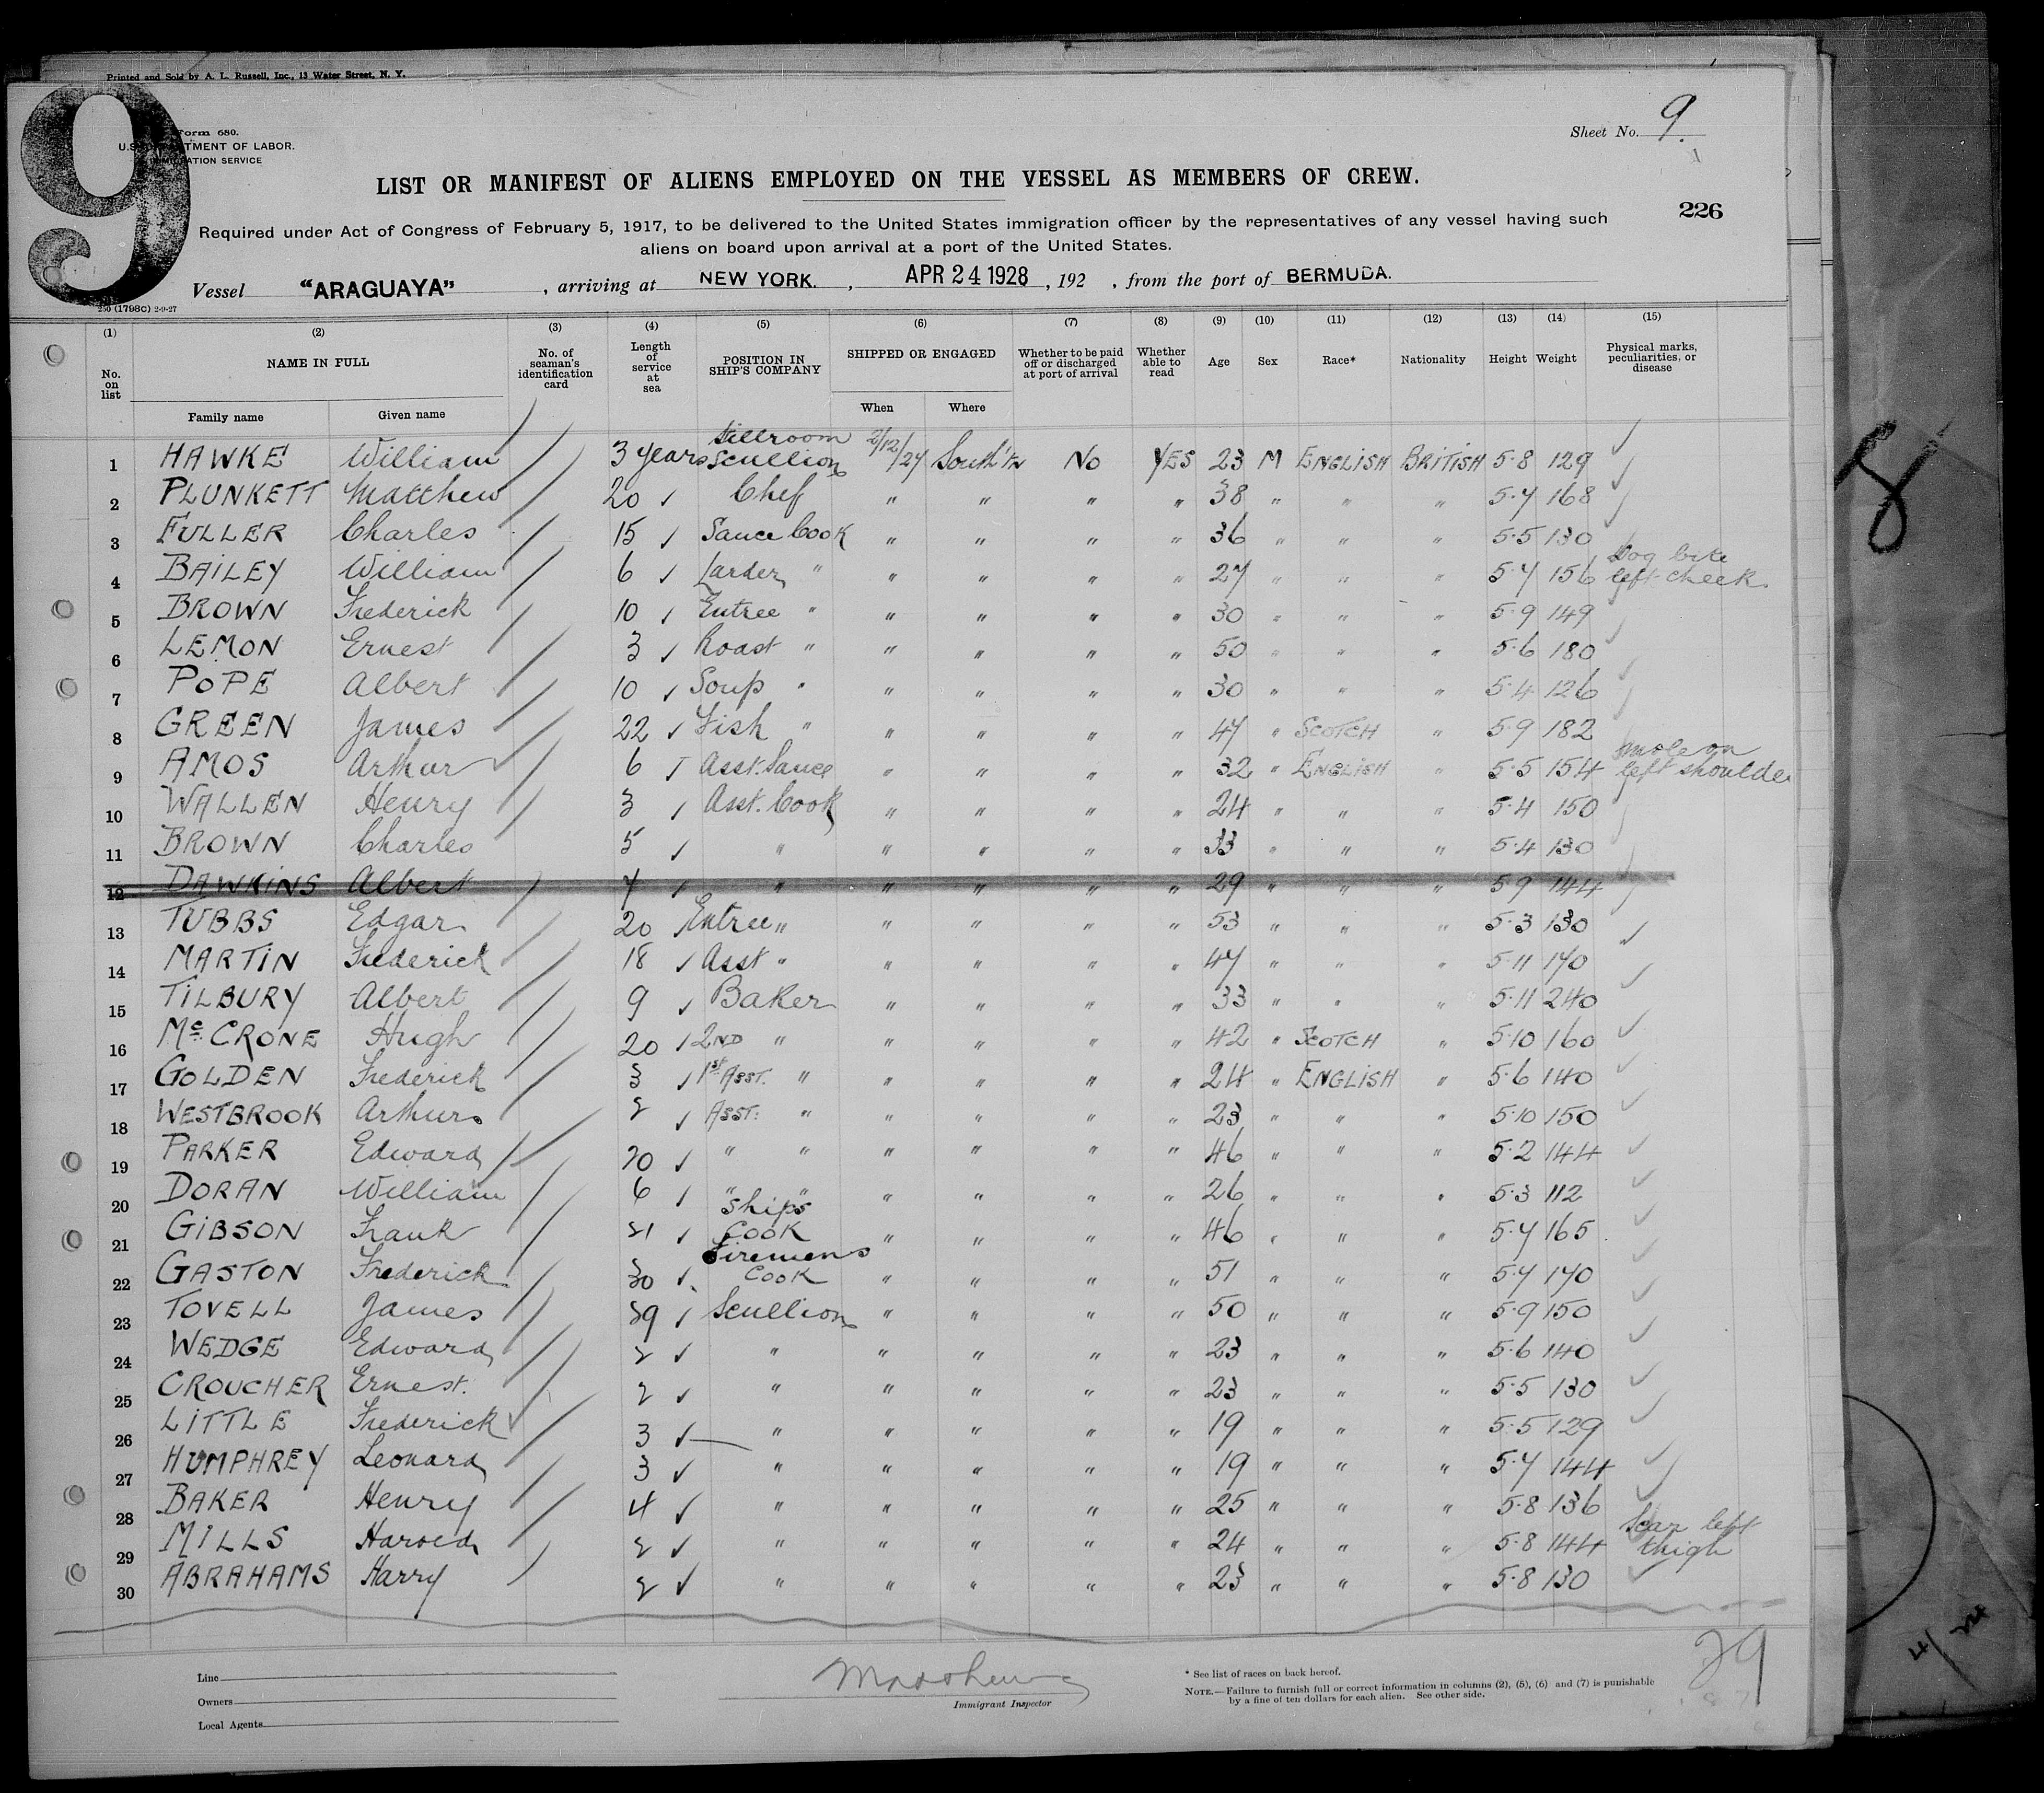 Printed and Sold by A. L. Russell, Inc., 13 Water Street, N. Y.
9
Form 680.
U.S. DEPARTMENT OF LABOR.
IMMIGRATION SERVICE
Sheet No. 9.
LIST OR MANIFEST OF ALIENS EMPLOYED ON THE VESSEL AS MEMBERS OF CREW.
226
Required under Act of Congress of February 5, 1917, to be delivered to the United States immigration officer by the representatives of any vessel having such
aliens on board upon arrival at a port of the United States.
Vessel "ARAGUAYA", arriving at NEW YORK., APR 24 1928, 192 , from the port of BERMUDA.
(1798C) 2-9-27
(1) (2) (3) (4) (5) (6) (7) (8) (9) (10) (11) (12) (13) (14) (15)
No. on list NAME IN FULL No. of seaman's identification card Length of service at sea POSITION IN SHIP'S COMPANY SHIPPED OR ENGAGED Whether to be paid off or discharged at port of arrival Whether able to read Age Sex Race* Nationality Height Weight Physical marks, peculiarities, or disease
Family name Given name When Where
1 HAWKE William 3 years Stillroom Scullion 2/12/27 South'tn No YES 23 M ENGLISH BRITISH 5·8 129
2 PLUNKETT Matthew 20 ✓ Chef " " " " 38 " " " 5·7 168
3 FULLER Charles 15 ✓ Sauce Cook " " " " 36 " " " 5·5 130
4 BAILEY William 6 ✓ Larder " " " " " 27 " " " 5·7 156 Dog bite left cheek.
5 BROWN Frederick 10 ✓ Entree " " " " " 30 " " " 5·9 149
6 LEMON Ernest 3 ✓ Roast " " " " " 50 " " " 5·6 180
7 POPE Albert 10 ✓ Soup " " " " " 30 " " " 5·4 126
8 GREEN James 22 ✓ Fish " " " " " 47 " SCOTCH " 5·9 182
9 AMOS Arthur 6 ✓ Asst. Sauce " " " " 32 " ENGLISH " 5·5 154 mole on left shoulder
10 WALLEN Henry 3 ✓ Asst. Cook " " " " 24 " " " 5·4 150
11 BROWN Charles 5 ✓ " " " " " 33 " " " 5·4 130
12 DAWKINS Albert 7 ✓ " " " " " 29 " " " 5·9 144
13 TUBBS Edgar 20 ✓ Entree " " " " " 53 " " " 5·3 130
14 MARTIN Frederick 18 ✓ Asst " " " " " 47 " " " 5·11 170
15 TILBURY Albert 9 ✓ Baker " " " " 33 " " " 5·11 240
16 McCRONE Hugh 20 ✓ 2ND " " " " " 42 " SCOTCH " 5·10 160
17 GOLDEN Frederick 3 ✓ 1st ASST. " " " " " 24 " ENGLISH " 5·6 140
18 WESTBROOK Arthur 2 ✓ ASST: " " " " " 23 " " " 5·10 150
19 PARKER Edward 20 ✓ " " " " " " 46 " " " 5·2 144
20 DORAN William 6 ✓ " " " " " " 26 " " " 5·3 112
21 GIBSON Frank 21 ✓ Ships Cook " " " " 46 " " " 5·7 165
22 GASTON Frederick 30 ✓ Firemens Cook " " " " 51 " " " 5·7 170
23 TOVELL James 39 ✓ Scullion " " " " 50 " " " 5·9 150
24 WEDGE Edward 2 ✓ " " " " " 23 " " " 5·6 140
25 CROUCHER Ernest. 2 ✓ " " " " " 23 " " " 5·5 130
26 LITTLE Frederick 3 ✓ " " " " " 19 " " " 5·5 129
27 HUMPHREY Leonard 3 ✓ " " " " " 19 " " " 5·7 144
28 BAKER Henry 4 ✓ " " " " " 25 " " " 5·8 136
29 MILLS Harold 2 ✓ " " " " " 24 " " " 5·8 144 Scar left thigh
30 ABRAHAMS Harry 2 ✓ " " " " " 23 " " " 5·8 130
29
Line
Owners
Local Agents
Immigrant Inspector
* See list of races on back hereof.
NOTE.—Failure to furnish full or correct information in columns (2), (5), (6) and (7) is punishable
by a fine of ten dollars for each alien. See other side.
8